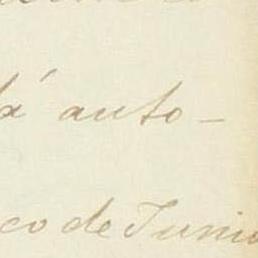 á auto-
co de Junio